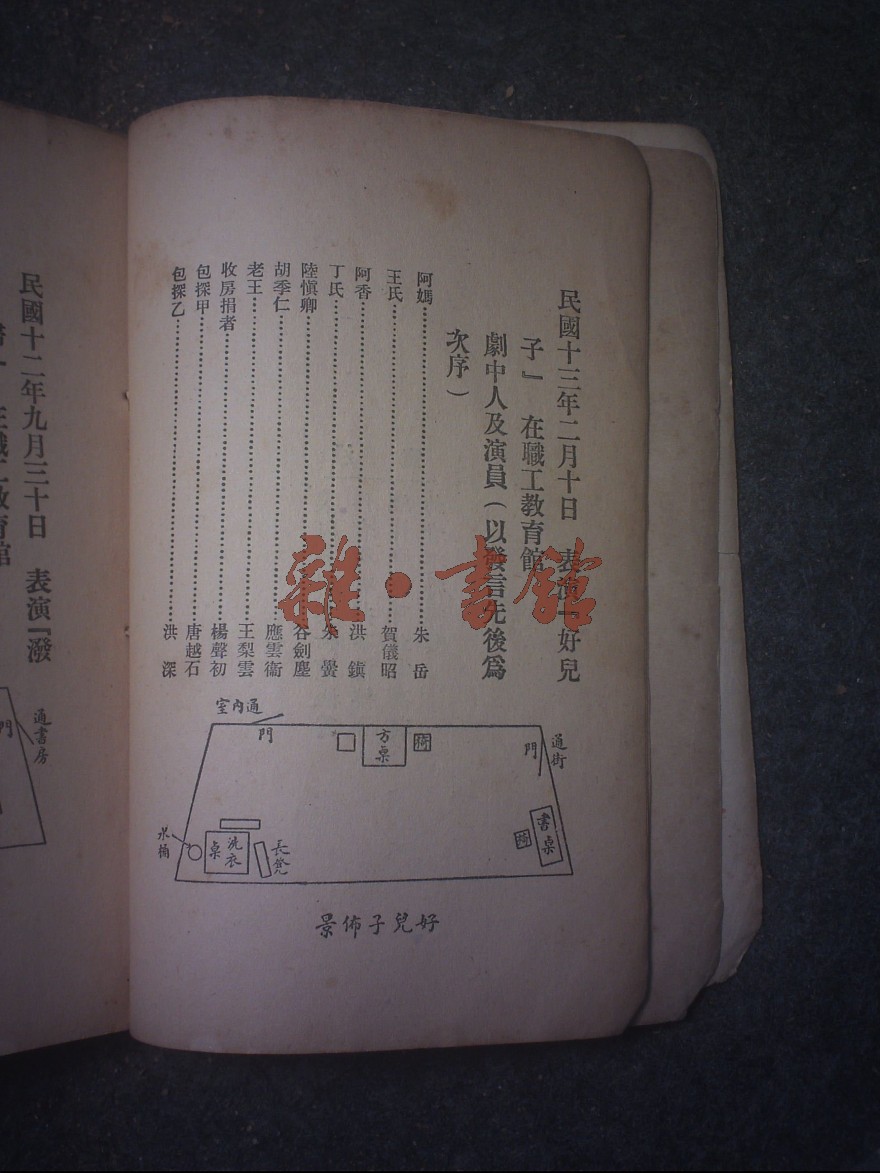 民國十三年二月十日　表演『好兒
子』　在職工教育館
劇中人及演員（以發言先後爲
次序）
阿媽……朱　岳
王氏……賀儀昭
阿香……洪　鎭
丁氏……朱　黌
陸愼卿……谷劍塵
胡季仁……應雲衞
老王……王梨雲
收房捐者……楊聲初
包探甲……唐越石
包探乙……洪　深
室內通
門
方桌
椅
門
通街
書桌
椅
水桶
洗衣桌
長凳
景佈子兒好
雜·書館
民國十二年九月三十日　表演『潑
在職工敎育館
門
通書房